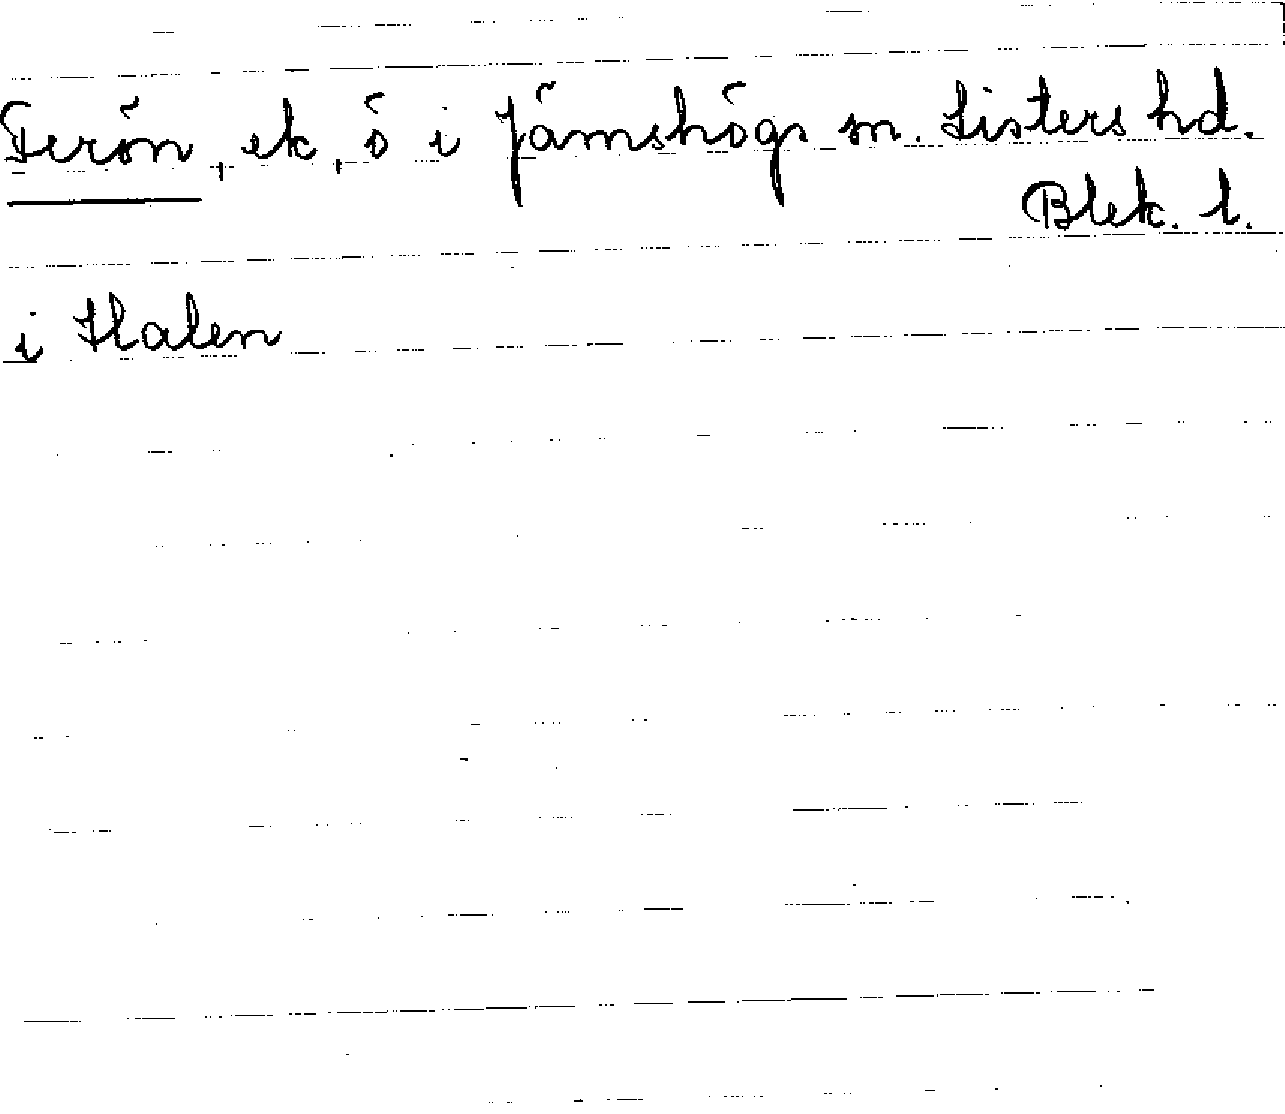 Terön, ek, ö i Jämshögs sn. Listers hd.
Blek. l.
i Halen